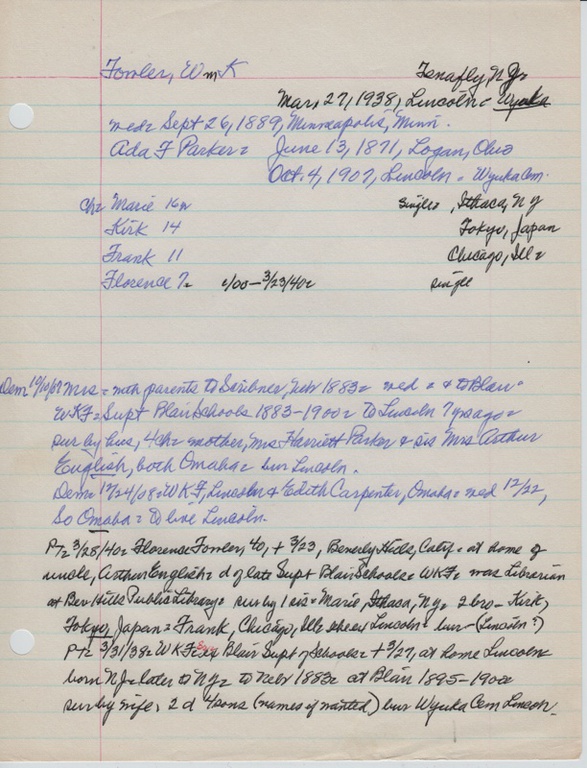 Fowler, Wm K Tenafly, N J=
Mar, 27, 1938, Lincoln = Wyuka
med= Sept 26, 1889, Minneapolis, Minn.
Ada F Parker= June 13, 1871, Logan, Ohio
Oct. 4, 1907, Lincoln = Wyuka Cem.
ch= Marie 16 single= , Ithaca, N Y
Kirk 14 Tokyo, Japan
Frank 11 Chicago, Ill=
Florence 7= c/00-3/23/40= single
Dem 10/10/07 Mrs= with parents to Scribner, Nebr 1883= med = & to Blair=
WKF= Supt Blair Schools 1883-1900= to Lincoln 7 ys ago=
sur by hus, 4 ch= mother, Mrs Harriett Parker & sis Mrs Arthur
English, both Omaha= bur Lincoln.
Dem= 12/24/08= WKF, Lincoln & Edith Carpenter, Omaha= med 12/22,
So Omaha= to live Lincoln.
PT= 3/28/40= Florence Fowler, 40, + 3/23, Beverly Hills, Calif= at home of
uncle, Arthur English= d of late Supt Blair Schools= WKF= was Librarian
at Bev Hills Public Library= sur by 1 sis= Marie, Ithaca, Ny= 2 bro- Kirk,
Tokyo, Japan= Frank, Chicago, Ill= Lincoln= bur- (Lincoln?)
PT= 3/31/38= WKF= Blair Supt of Schools= + 3/27, at home Lincoln=
born NJ= later to NY= to Nebr 1883= at Blair 1895-1900
sur by wife, 2 d 4 sons (names of wanted) bur Wyuka Cem Lincoln.